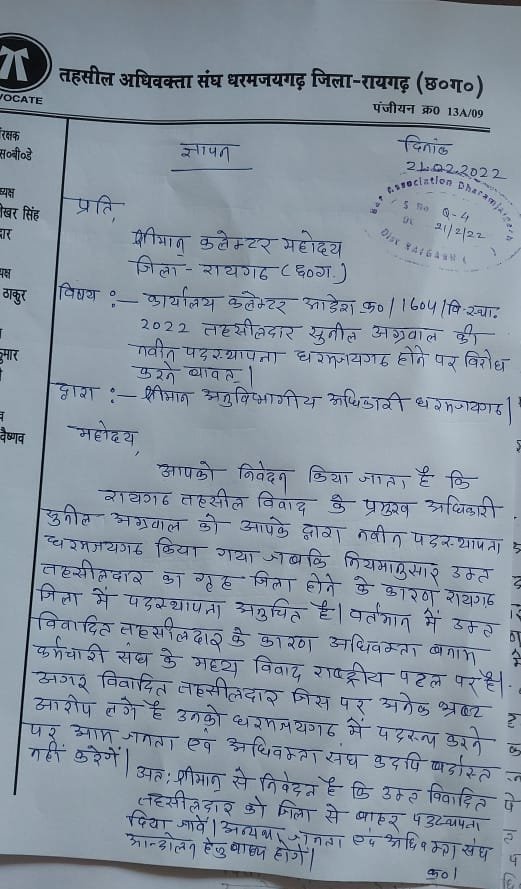 VOCATE
तहसील अधिवक्ता संघ धरमजयगढ़ जिला-रायगढ़ (छ०ग०)
पंजीयन क्र० 13A/09
रक्षक
स०बी०डे
यक्ष
खर सिंह
दार
ठाकुर
कुमार
वैष्णव
दिनांक
21.02.2022
ज्ञापन
Bar Association Dharamjaigarh
S No Q-4
Dt 21/2/22
Dist RAIGARH
प्रति,
श्रीमान् कलेक्टर महोदय
जिला - रायगढ (छ०ग.)
विषय :- कार्यालय कलेक्टर आदेश क्र० /1604/वि.स्था.
2022 तहसीलदार सुनील अग्रवाल की
नवीन पदस्थापना धरमजयगढ होने पर विरोध
करने बाबत।
द्वारा :- श्रीमान अनुविभागीय अधिकारी धरमजयगढ।
महोदय,
आपको निवेदन किया जाता है कि
रायगढ तहसील विवाद के प्रमुख अधिकारी
सुनील अग्रवाल को आपके द्वारा नवीन पदस्थापना
धरमजयगढ किया गया जबकि नियमानुसार उक्त
तहसीलदार का गृह जिला होने के कारण रायगढ
जिला में पदस्थापना अनुचित है। वर्तमान में उक्त
विवादित तहसीलदार के कारण अधिवक्ता बनाम
कर्मचारी संघ के मध्य विवाद राष्ट्रीय पटल पर है।
अगर विवादित तहसीलदार जिस पर अनेक भ्रष्ट
आरोप लगे है उनको धरमजयगढ में पदस्थ करने
पर आम जनता एवं अधिवक्ता संघ कदपि बर्दास्त
नहीं करेगें।
अतः श्रीमान् से निवेदन है कि उक्त विवादित
तहसीलदार को जिला से बाहर पदस्थापना
दिया जावें। अन्यथा जनता एवं अधिवक्ता संघ
आन्दोलन हेतु बाध्य होगें।
क०।